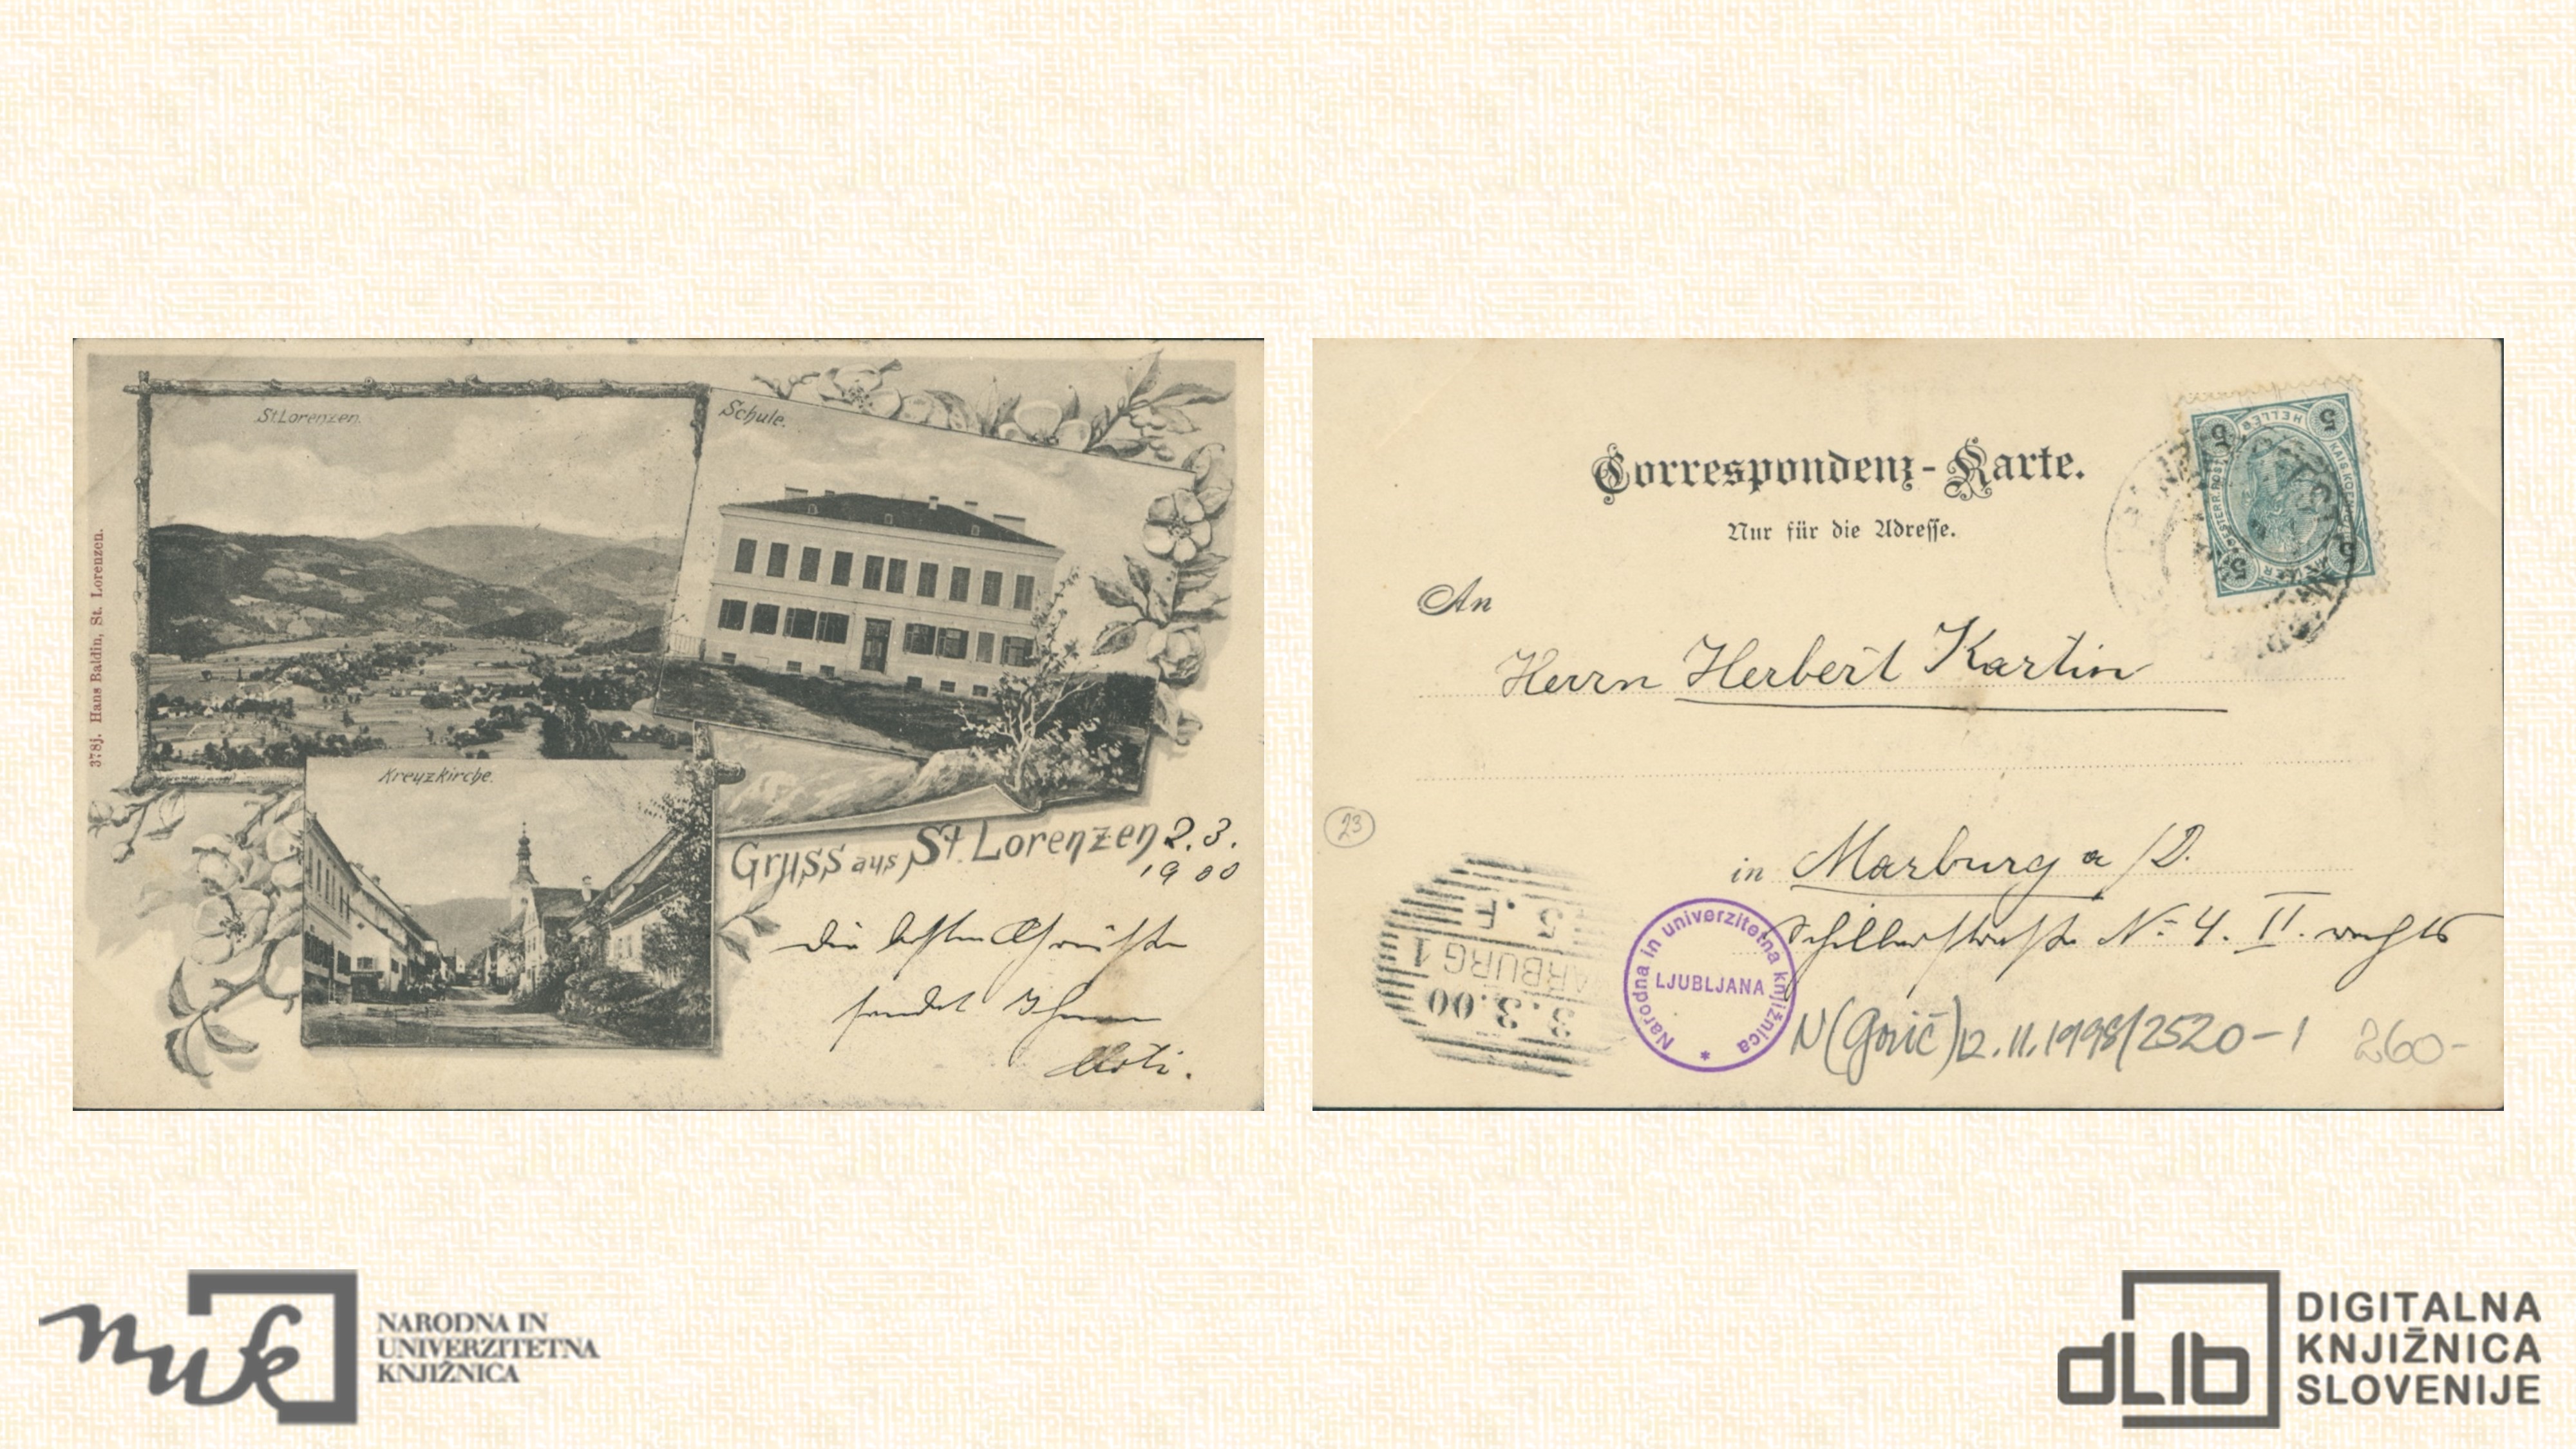 St. Lorenzen.
Schule.
Kreuzkirche.
378j. Hans Baldin, St. Lorenzen.
Gruss aus St. Lorenzen 2.3.
1900
Die besten Grüsse
sendet Ihnen
Correspondenz-Karte.
Nur für die Adresse.
An
Herrn Herbert Kartin
in Marburg a/D.
Schillerstrasse No 4. II. rechts
23
5 HELLER 5
5 5
MARBURG 1
3.3.00
5.F
Narodna in univerzitetna knjižnica
LJUBLJANA
N(Gorič)12.11.1998/2520-1 260-
nuk
NARODNA IN
UNIVERZITETNA
KNJIŽNICA
dLib
DIGITALNA
KNJIŽNICA
SLOVENIJE